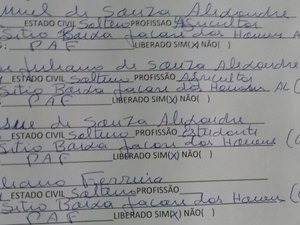 de Souza Alexandre
ESTADO CIVIL Solteiro PROFISSÃO Agricultor
Sitio Baixa Jacaré dos Homens AL
PAF LIBERADO SIM(X) NÃO( )
Juliano de Souza Alexandre
ESTADO CIVIL Solteiro PROFISSÃO Agricultor
Sitio Baixa Jacaré dos Homens AL
PAF LIBERADO SIM(X) NÃO( )
de Souza Alexandre
ESTADO CIVIL Solteiro PROFISSÃO Estudante
Sitio Baixa Jacaré dos Homens
PAF LIBERADO SIM(X) NÃO( )
Ferreira
ESTADO CIVIL Solteiro PROFISSÃO
Sitio Baixa Jacaré dos Homens
PAF LIBERADO SIM(X) NÃO( )